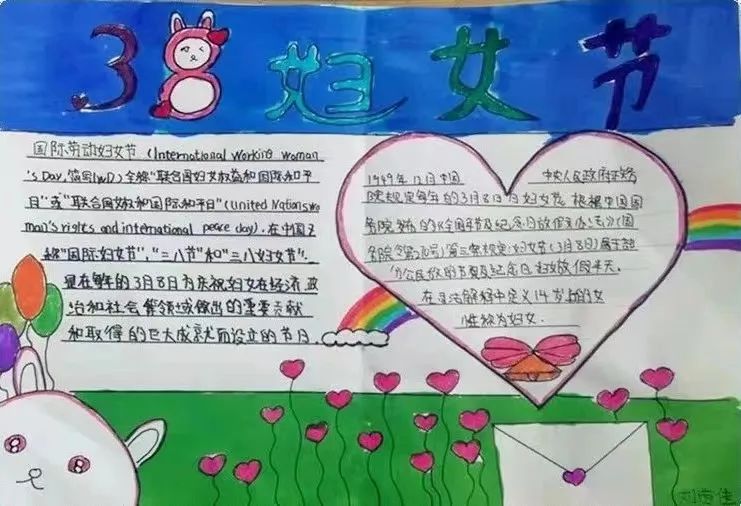 38妇女节
国际劳动妇女节 (International Working Woman
's Day, 简写IWD) 全称"联合国妇女权益和国际和平
日"或"联合国女权和国际和平日"(United Nations wo
man's rights and international peace day). 在中国又
称"国际妇女节","三八节"和"三八妇女节".
是在每年的3月8日为庆祝妇女在经济、政
治和社会等领域做出的重要贡献
和取得的巨大成就而设立的节日.
1949年12月中国 中央人民政府政务
院规定每年的3月8日为妇女节. 根据中国国
务院发布的《全国年节及纪念日放假办法》(国
务院令第 号) 第三条规定:妇女节(3月8日)属于部
分公民放假的节日及纪念日妇女放假半天.
在司法解释中定义14岁以上的女
性称为妇女.